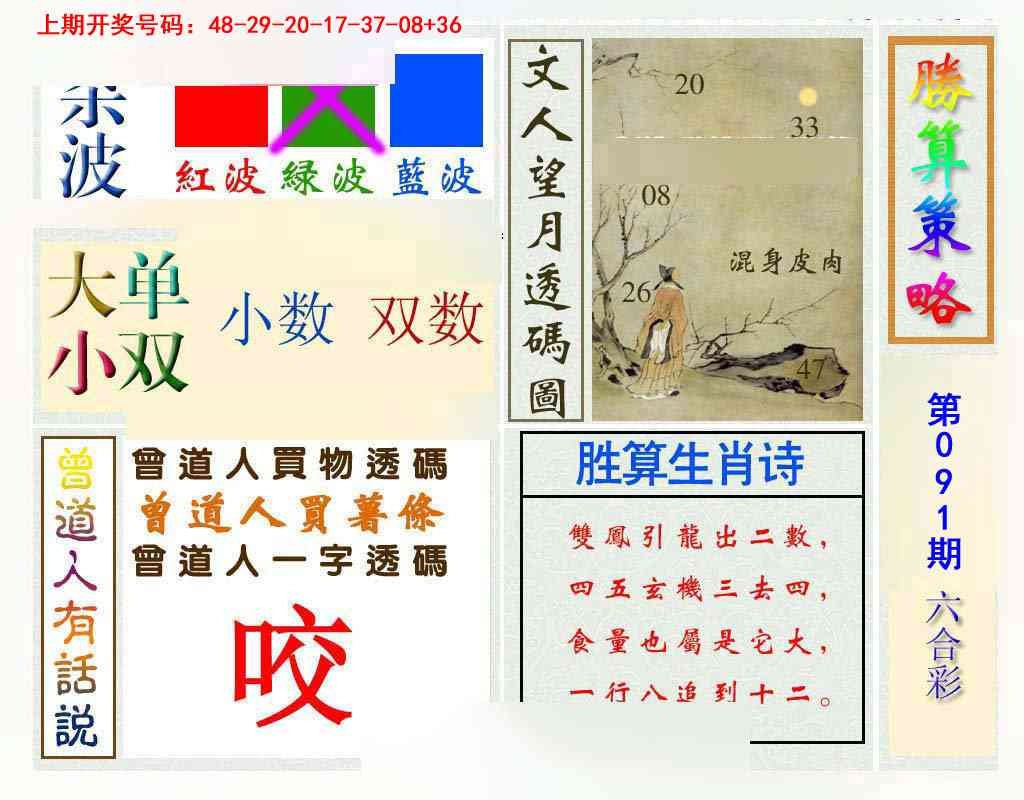 上期开奖号码：48-29-20-17-37-08+36
波
紅波 绿波 藍波
大单
小双
小数 双数
文人望月透碼圖
20
33
08
混身皮肉
26
47
勝算策略
第091期
六合彩
曾道人有話説
曾道人買物透碼
曾道人買薯條
曾道人一字透碼
咬
胜算生肖诗
雙鳳引龍出二數，
四五玄機三去四，
食量也屬是它大，
一行八追到十二。